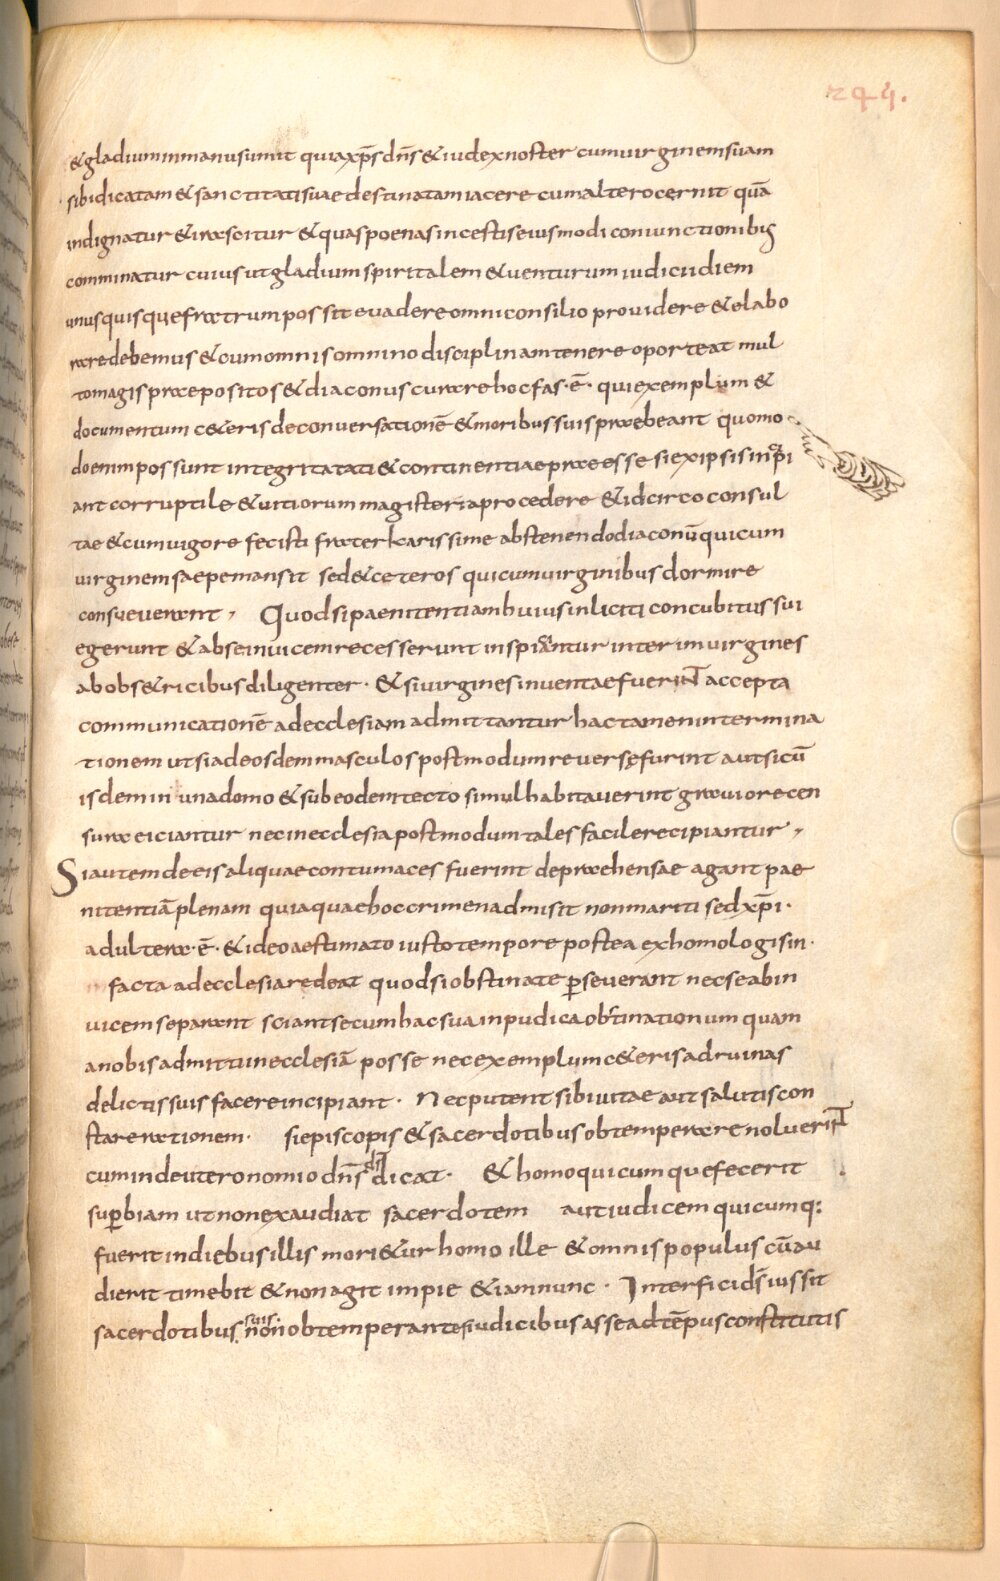 245.
&gladium in manu sumit quia xp̄s dn̄s & iudex noster cum uirginem suam
sibi dicatam & sanctitati suae destinatam iacere cum altero cernit quā
indignatur & irascitur & quas poenas incestis eiusmodi coniunctionib;
comminatur cuius ut gladium spiritalem & uenturum iudicii diem
unusquisque fratrum possit euadere omni consilio prouidere & elabo
rare debemus & cum omnis omnino disciplinam tenere oporteat mul
to magis praepositos & diaconus curare hoc fas ·ē· qui exemplum &
documentum c&eris de conuersationē & moribus suis praebeant quomo
do enim possunt integritatati & continentiae praeesse si ex ipsis inc̣ipi
ant corruptile & uitiorum magisteria procedere & idcirco consul
tae & cum uigore fecisti frater karissime abstenendo diaconū qui cum
uirginem saepe mansit sed & ceteros qui cum uirginibus dormire
consueuerant, Quod si paenitentiam huius inliciti concubitus sui
egerunt & abse inuicem recesserunt inspiciantur interim uirgines
ab obs&ricibus diligenter · & si uirgines inuentae fuerinT accepta
communicationē ad ecclesiam admittantur hac tamen intermina
tionem ut si ad eosdem masculos postmodum reuersę furint aut si cū
isdem in una domo & sub eodem tecto simul habitauerint grauiore cen
sura eiciantur nec in ecclesia postmodum tales facile recipiantur,
Si autem de eis aliquae contumaces fuerint deprahensae agant pae
nitentiā plenam quia quae hoc crimen admisit non mariti sed xp̄i ·
adultera ·ē· & ideo aestimato iusto tempore postea exhomologisin ·
facta ad ecclesia redeat quod si obstinate p̱seuerant nec se ab in
uicem separant sciant se cum hac sua inpudica obstinatio numquam
a nobis admitti in ecclesiā posse nec exemplum c&eris ad ruinas
delictis suis facere incipiant · Nec putent sibi uitae aut salutis con
stare rationem · si episcopis & sacerdotibus obtemperare noluerinT
cum in deuteronomio dn̄s dī dicat · & homo quicumque fecerit
sup̱biam ut non exaudiat sacerdotem aut iudicem quicumq:
fuerit in diebus illis mori&ur homo ille & omnis populus cū au
dierit timebit & non agit impie & iam nunc · Interfici ds̄ iussit
sacerdotibus suis non obtemperantes iudicibus a sse ad tēpus constitutis